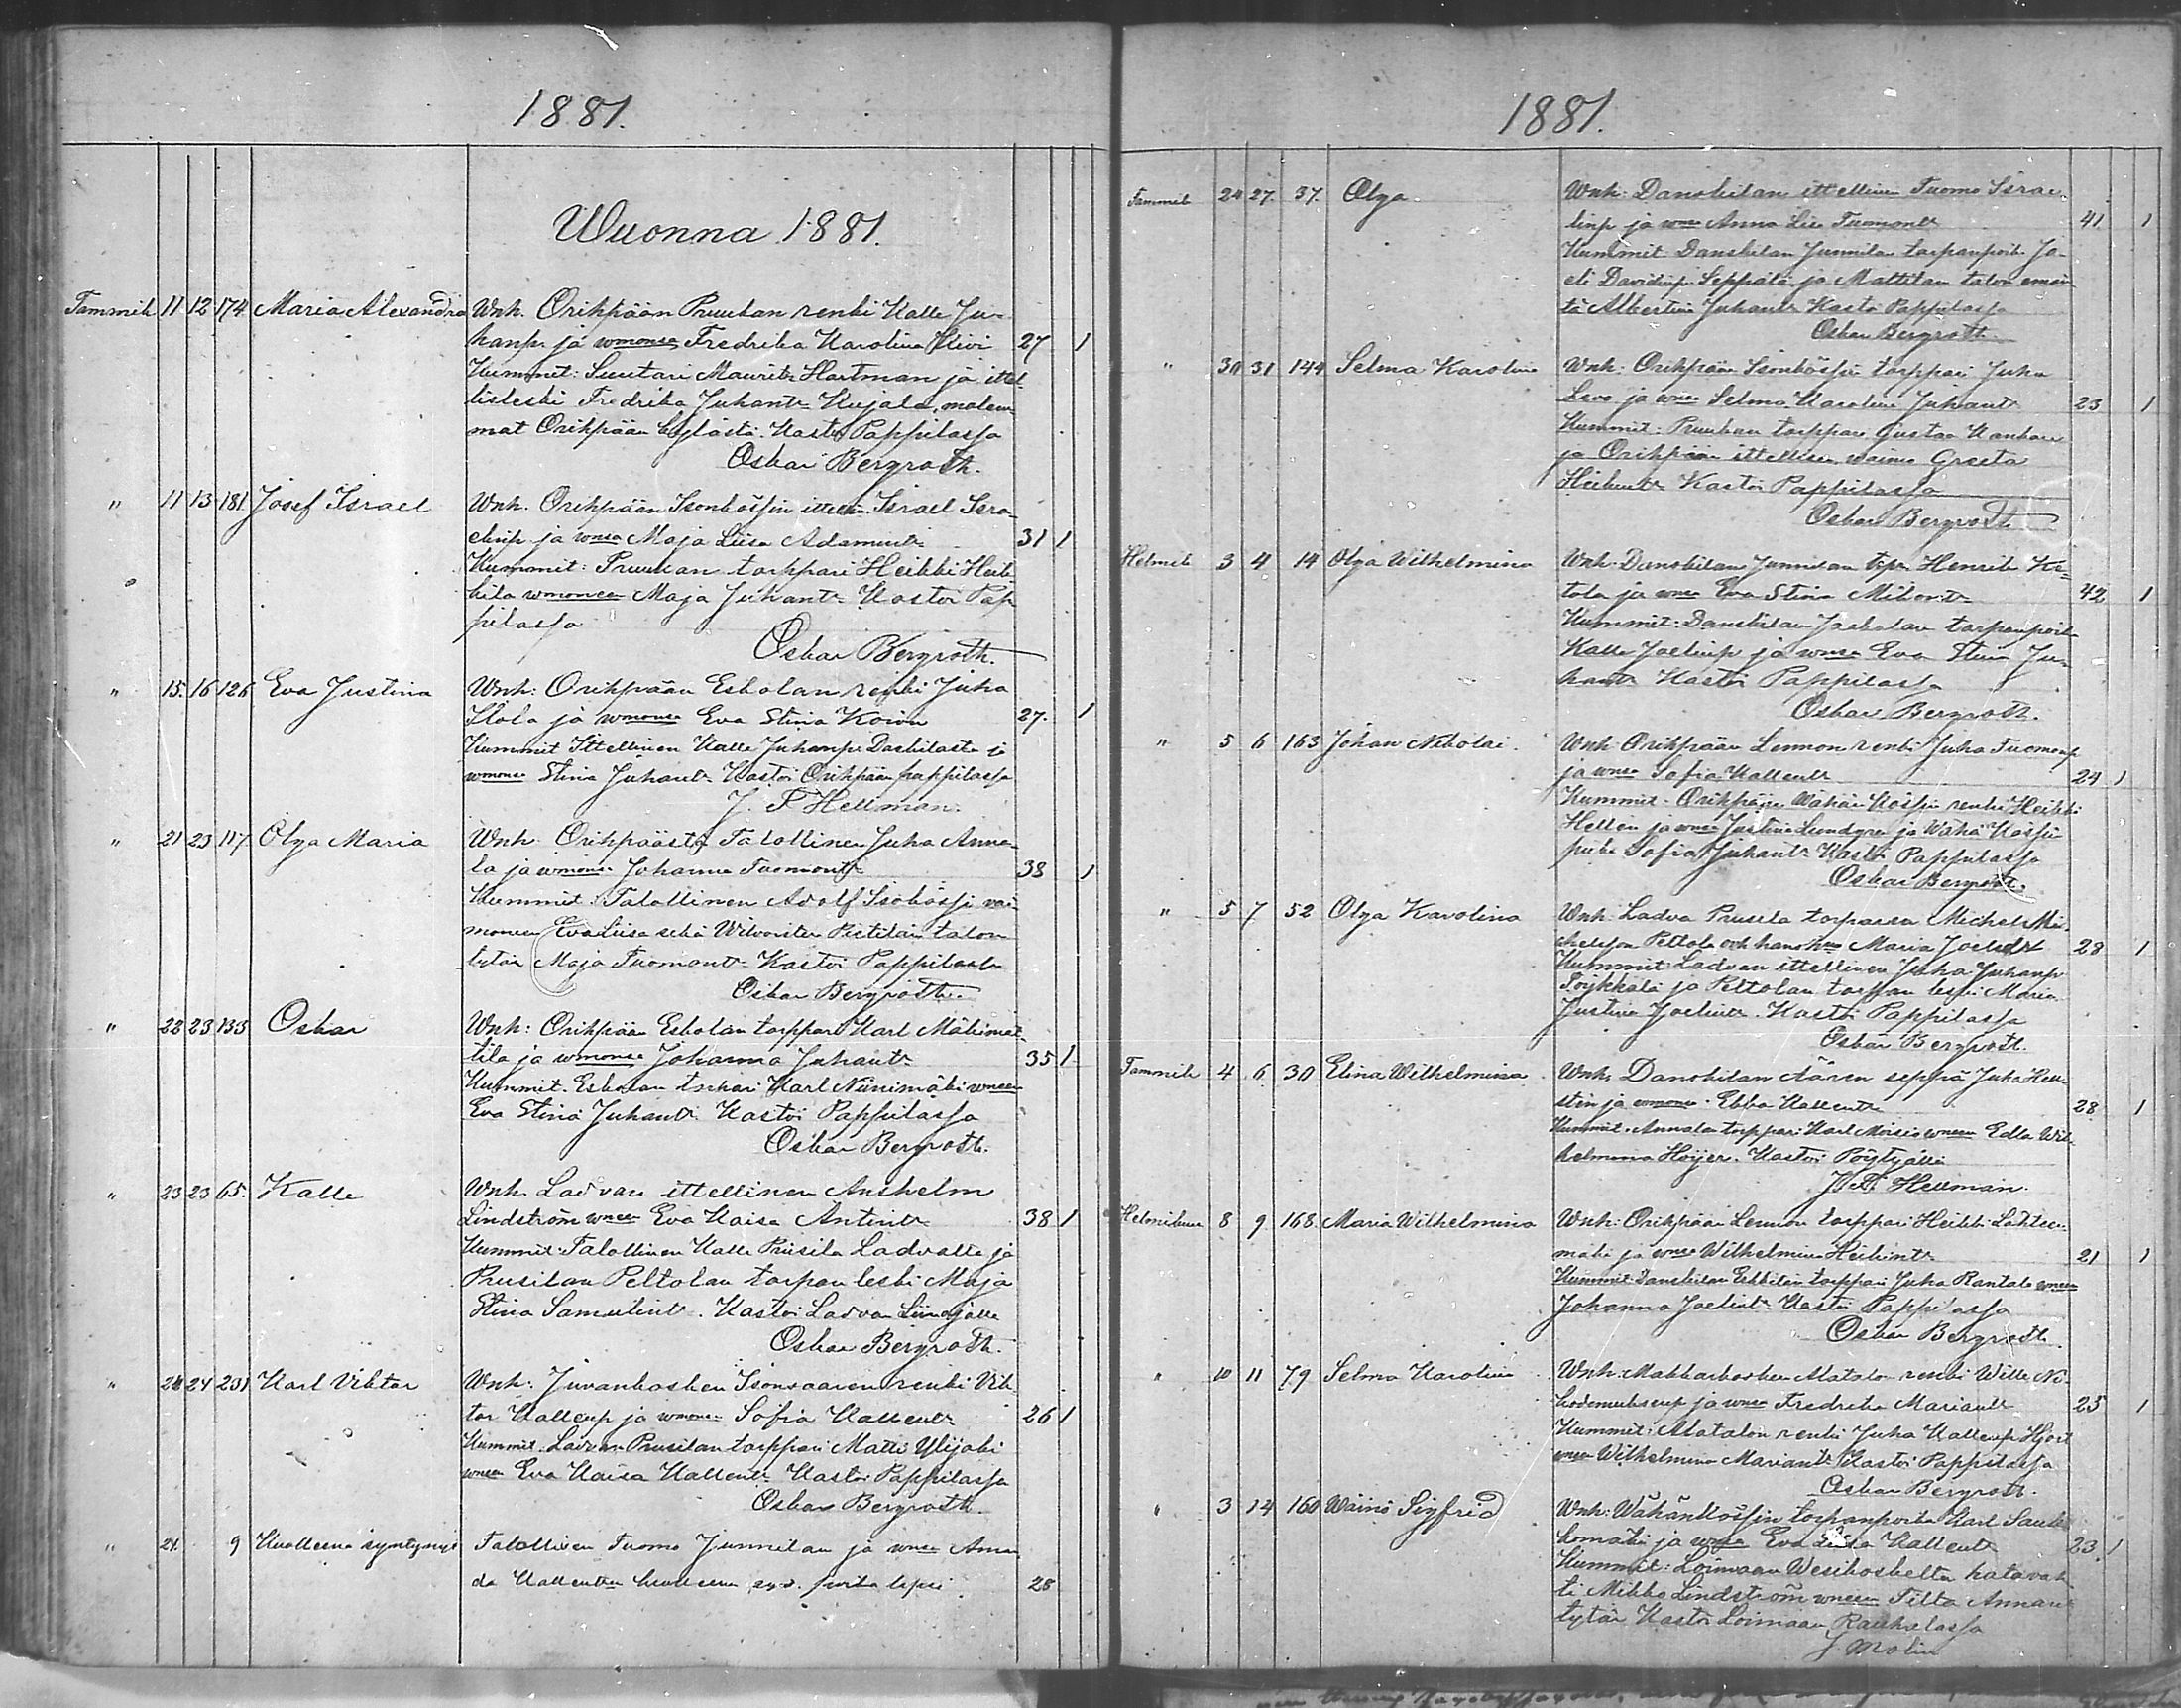 1881.
Wuonna 1881.
Tammik 11 12 174 Maria Alexandra Wnh. Orihpään Pruukan renki Kalle Ju-
hanp. ja wmonsa Fredrika Karolina Kivi 27 1
Kummit: Suutari Maurits Hartman ja ittel-
lisleski Fredrika Juhantr Kujala, molem-
mat Orihpään kylästä. Kastoi Pappilassa
Oskar Bergroth.
" 11 13 181 Josef Israel Wnh. Orihpään Isonkössin ittellin. Israel Isra-
elinp ja wnsa Maja Liisa Adamintr 31 1
Kummit: Pruukan torppari Heikki Heik-
kila wmoneen Maja Juhantr Kastoi Pap-
pilassa
Oskar Bergroth.
" 15. 16 126 Eva Justina Wnh: Orihpään Eskolan renki Juha
Ilola ja wmonsa Eva Stina Koivu 27. 1
Kummit Ittellinen Kalle Juhanp. ja
wmonsa Stina Juhantr. Kastoi Orihpään pappilassa
J. F. Hellman.
" 21 23 117 Olga Maria Wnh. Orihpäästä Talollinen Juha Anna-
la ja wmonsa Johanna Tuomontr 38 1
Kummit: Talollinen Adolf Isokössi vai-
moneen Eva Liisa sekä talon
tytär Maja Tuomontr Kastoi Pappilassa
Oskar Bergroth.
" 22 23 133 Oskar Wnh: Orihpään Eskolan torppari Karl Mäkimat-
tila ja wmonsa Johanna Juhantr 35 1
Kummit. Eskolan Karl Niinimäki wmeen
Eva Stina Juhantr. Kastoi Pappilassa
Oskar Bergroth.
" 23 23 65. Kalle Wnh. Ladvan ittellinen Anshelm
Lindström wneen Eva Kaisa Antintr 38 1
Kummit: Talollinen Kalle Prusila Ladvalta ja
Prusilan Peltolan torpan leski Maja
Stina Samulintr. Kastoi Ladvan
Oskar Bergroth.
" 24 24 231 Karl Viktor Wnh: Juvankosken Isonvaaren renki Vik-
tor Kallenp ja wmonsa Sofia Kallentr 26 1
Kummit. Ladvan Prusilan torppari Matti Ylijoki
wneen Eva Kaisa Kallentr Kastoi Pappilassa
Oskar Bergroth.
" 24. 9 Kuolleena syntynyt Talollisen Tuomo Junnilan ja wnsa Aman-
da Kallentrn kuolleena synt. poika lapsi 28
1881.
Tammik 24 27. 37. Olga Wnh: Danskilan ittellinen Tuomo Israe-
linp ja wnsa Anna Liis Tuomontr 41 1
Kummit Danskilan Junnilan torpanpoika Jo-
eli Davidinp. Seppälä ja Mattilan talon emän-
tä Albertina Juhantr Kastoi Pappilassa
Oskar Bergroth.
" 30 31 144 Selma Karolina Wnh: Orihpään Isonkössin torppari Juha
Levo ja wnsa Selma Karolina Juhantr 23 1
Kummit: Pruukan torppari Gustav Kankare
ja Orihpään ittellisen waimo Greeta
Heikintr Kastoi Pappilassa
Oskar Bergroth
Helmik 3 4 14 Olga Wilhelmina Wnh. Danskilan Junnilan tp. Henrik Ke-
tola ja wnsa Eva Stina Mikontr 42 1
Kummit: Danskilan Jaakolan torpanpoika
Kalle Joelinp ja wnsa Eva Stina Ju-
hantr Kastoi Pappilassa
Oskar Bergroth.
" 5 6 163 Johan Nikolai. Wnh: Orihpään Lennon renki Juha Tuomonp
ja wnsa Sofia Kallentr 24 1
Kummit. Orihpään Wähän Kössin renki Heikki
Hellen ja wnsa Justina Lundgren ja Wähä Kössin
piika Sofia Juhantr Kastoi Pappilassa
Oskar Bergroth.
" 5 7 52 Olga Karolina Wnh: Ladva Prusila torparen Michel Mi-
chelsson Peltola och hans hu Maria Joelsdr 28 1
Kummit Ladvan ittellinen Juha Juhanp
ja Peltolan torpan leski Maria
Justina Joelintr. Kastoi Pappilassa
Oskar Bergroth.
Tammik 4 6 30 Elina Wilhelmina Wnh: Danskilan Äären seppä Juha Hell-
stén ja wmonsa Ebba Kallentr 28 1
Kummit. Annalan torppari Karl Moisio wneen Edla Wil-
helmina Höijer. Kastoi Pöytyällä
J. F. Hellman.
Helmikuu 8 9 168. Maria Wilhelmina Wnh: Orihpään Lennon torppari Heikki Lähteen-
mäki ja wnsa Wilhelmina Heikintr 21 1
Kummit: Danskilan Erkkilän torppari Juha Rantala wneen
Johanna Joelintr Kastoi Pappilassa
Oskar Bergroth
" 10 11 79 Selma Karolina Wnh: Makkarkosken Alatalon renki Wille Ni-
kodemuksenp ja wnsa Fredrika Mariantr 25 1
Kummit: Alatalon renki Juha Kallenp Hjort
wnsa Wilhelmina Mariantr Kastoi Pappilassa
Oskar Bergroth.
" 3 14 160 Wäinö Sigfrid Wnh: Wähänkössin torpanpoika Karl Sauk-
komäki ja wnsa Eva Liisa Kallentr 23. 1
Kummit: Loimaan Wesikoskelta
Mikko Lindström wneen Tilta Annan-
tytär Kastoi Loimaan
J. Molin